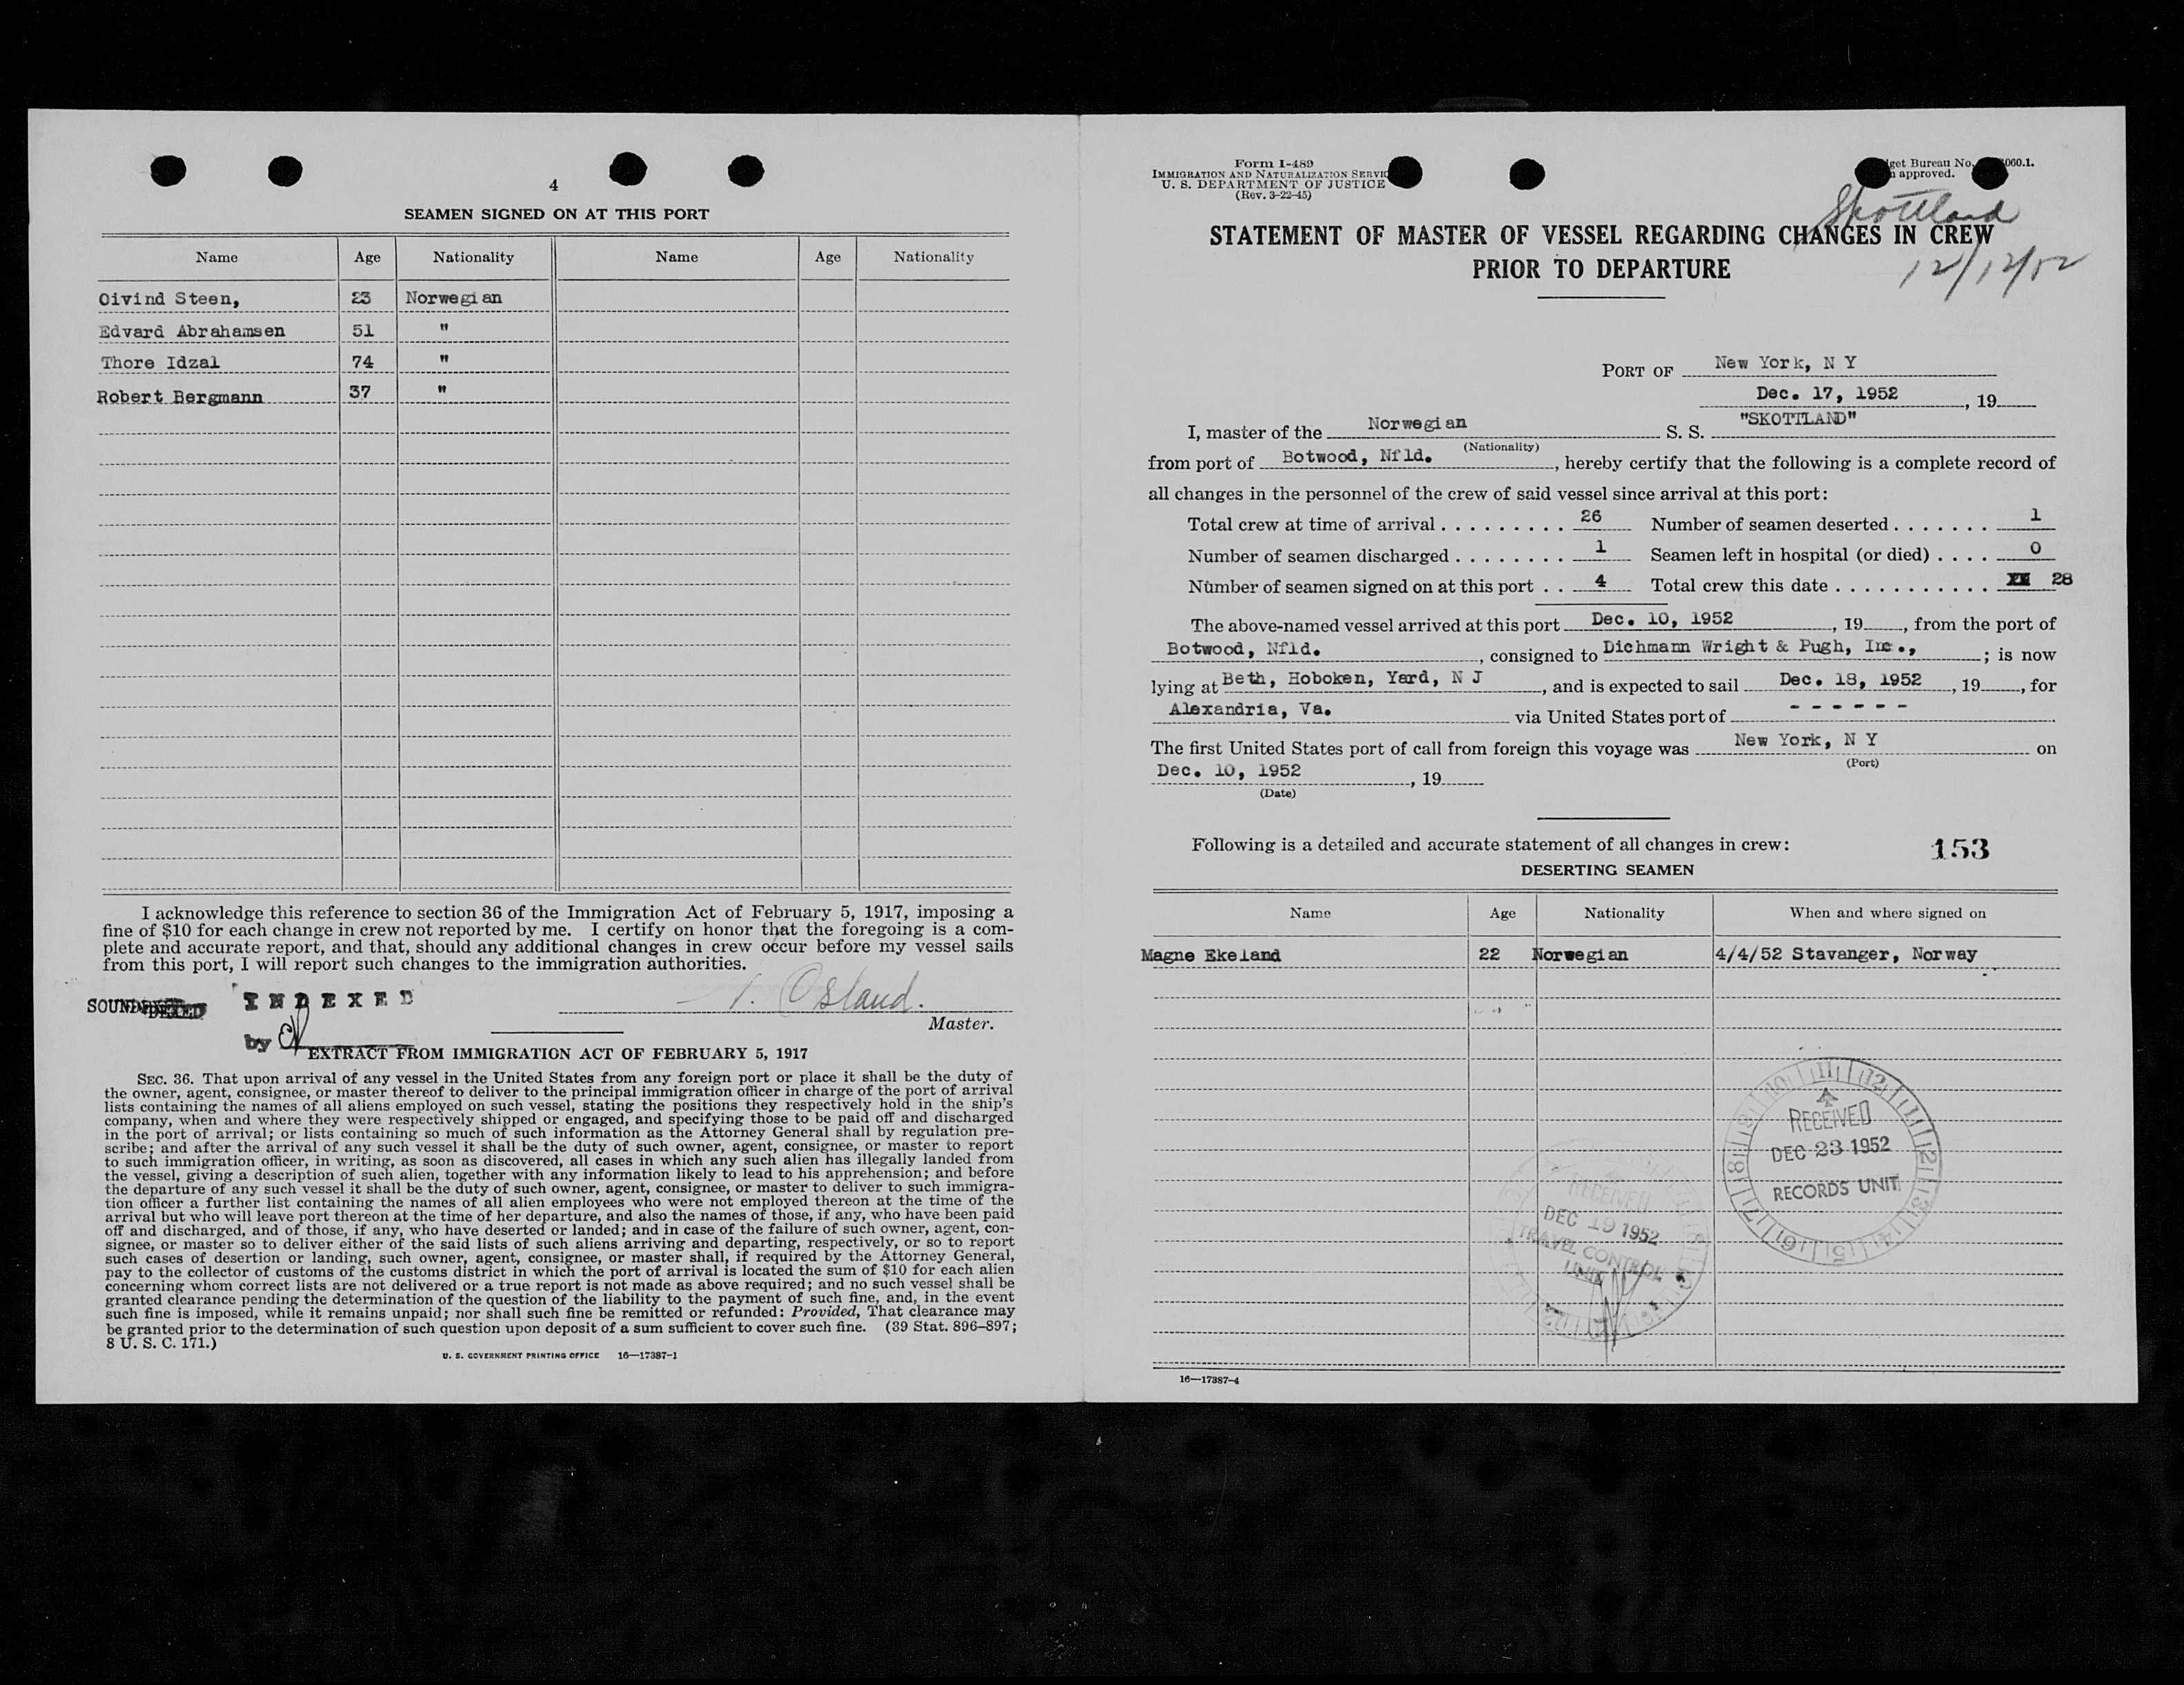 4
SEAMEN SIGNED ON AT THIS PORT
Name Age Nationality Name Age Nationality
Oivind Steen, 23 Norwegian
Edvard Abrahamsen 51 "
Thore Idzal 74 "
Robert Bergmann 37 "
I acknowledge this reference to section 36 of the Immigration Act of February 5, 1917, imposing a
fine of $10 for each change in crew not reported by me. I certify on honor that the foregoing is a com-
plete and accurate report, and that, should any additional changes in crew occur before my vessel sails
from this port, I will report such changes to the immigration authorities.
INDEXED
by
Osland.
Master.
EXTRACT FROM IMMIGRATION ACT OF FEBRUARY 5, 1917
SEC. 36. That upon arrival of any vessel in the United States from any foreign port or place it shall be the duty of
the owner, agent, consignee, or master thereof to deliver to the principal immigration officer in charge of the port of arrival
lists containing the names of all aliens employed on such vessel, stating the positions they respectively hold in the ship's
company, when and where they were respectively shipped or engaged, and specifying those to be paid off and discharged
in the port of arrival; or lists containing so much of such information as the Attorney General shall by regulation pre-
scribe; and after the arrival of any such vessel it shall be the duty of such owner, agent, consignee, or master to report
to such immigration officer, in writing, as soon as discovered, all cases in which any such alien has illegally landed from
the vessel, giving a description of such alien, together with any information likely to lead to his apprehension; and before
the departure of any such vessel it shall be the duty of such owner, agent, consignee, or master to deliver to such immigra-
tion officer a further list containing the names of all alien employees who were not employed thereon at the time of the
arrival but who will leave port thereon at the time of her departure, and also the names of those, if any, who have been paid
off and discharged, and of those, if any, who have deserted or landed; and in case of the failure of such owner, agent, con-
signee, or master so to deliver either of the said lists of such aliens arriving and departing, respectively, or so to report
such cases of desertion or landing, such owner, agent, consignee, or master shall, if required by the Attorney General,
pay to the collector of customs of the customs district in which the port of arrival is located the sum of $10 for each alien
concerning whom correct lists are not delivered or a true report is not made as above required; and no such vessel shall be
granted clearance pending the determination of the question of the liability to the payment of such fine, and, in the event
such fine is imposed, while it remains unpaid; nor shall such fine be remitted or refunded: Provided, That clearance may
be granted prior to the determination of such question upon deposit of a sum sufficient to cover such fine. (39 Stat. 896–897;
8 U. S. C. 171.)
U. S. GOVERNMENT PRINTING OFFICE 16—17387-1
Form I-489
IMMIGRATION AND NATURALIZATION SERVIC
U. S. DEPARTMENT OF JUSTICE
(Rev. 3-22-45)
get Bureau No. 060.1.
approved.
Skottland
12/12/52
STATEMENT OF MASTER OF VESSEL REGARDING CHANGES IN CREW
PRIOR TO DEPARTURE
PORT OF New York, N Y
Dec. 17, 1952, 19
I, master of the Norwegian S. S. "SKOTTLAND"
(Nationality)
from port of Botwood, Nfld., hereby certify that the following is a complete record of
all changes in the personnel of the crew of said vessel since arrival at this port:
Total crew at time of arrival 26 Number of seamen deserted 1
Number of seamen discharged 1 Seamen left in hospital (or died) 0
Number of seamen signed on at this port 4 Total crew this date 28
The above-named vessel arrived at this port Dec. 10, 1952, 19, from the port of
Botwood, Nfld., consigned to Dichmann Wright & Pugh, Inc.,; is now
lying at Beth, Hoboken, Yard, N J, and is expected to sail Dec. 18, 1952, 19, for
Alexandria, Va. via United States port of - - - - - -
The first United States port of call from foreign this voyage was New York, N Y on
(Port)
Dec. 10, 1952, 19
(Date)
Following is a detailed and accurate statement of all changes in crew: 153
DESERTING SEAMEN
Name Age Nationality When and where signed on
Magne Ekeland 22 Norwegian 4/4/52 Stavanger, Norway
RECEIVED
DEC 23 1952
RECORDS UNIT
RECEIVED
DEC 19 1952
TRAVEL CONTROL
UNIT
16—17387-4